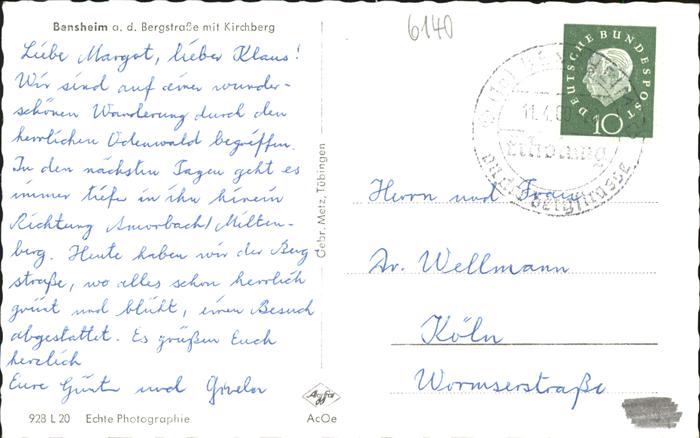 Bensheim a. d. Bergstraße mit Kirchberg
6140
Liebe Margot, lieber Klaus!
Wir sind auf einer wunder-
schönen Wanderung durch den
herrlichen Odenwald begriffen.
In den nächsten Tagen geht es
immer tiefer in ihn hinein
Richtung Amorbach/Milten-
berg. Heute haben wir der Berg-
straße, wo alles schon herrlich
grünt und blüht, einen Besuch
abgestattet. Es grüßen Euch
herzlich
Eure Günter und
928 L 20 Echte Photographie
Gebr. Metz, Tübingen
Agfa
AcOe
DEUTSCHE BUNDESPOST
10
Bergstrasse
Herrn und Frau
Dr. Wellmann
Köln
Wormserstraße